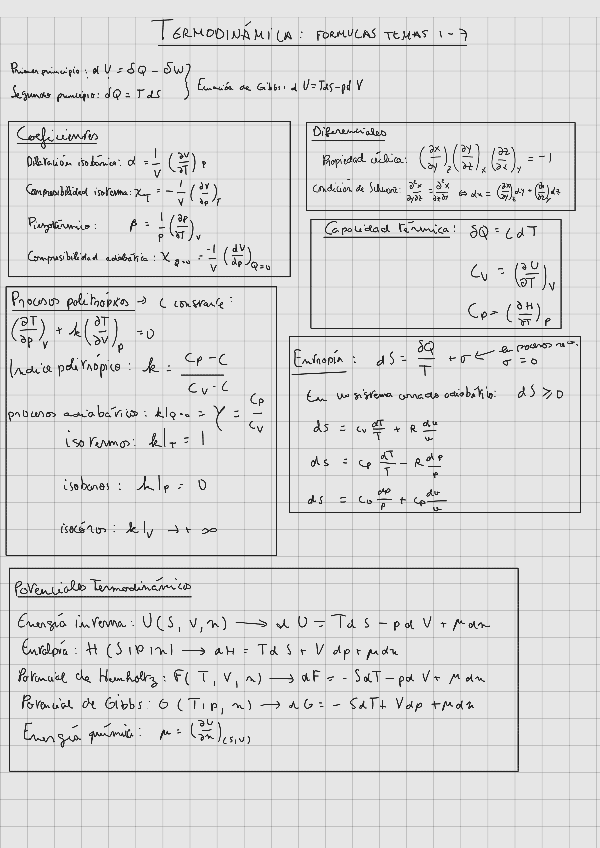 TERMODINÁMICA: FORMULAS TEMAS 1-7
Primer principio: dU = δQ - δW
Segundo principio: δQ = T dS
} Ecuación de Gibbs: dU = TdS - pdV
Coeficientes
Dilatación isobárica: α = 1/V (∂V/∂T)p
Compresibilidad isoterma: χT = - 1/V (∂V/∂p)T
Piezotérmico: β = 1/p (∂p/∂T)V
Compresibilidad adiabática: χQ=0 = -1/V (dV/dp)Q=0
Diferenciales
Propiedad cíclica: (∂x/∂y)z (∂y/∂z)x (∂z/∂x)y = -1
Condición de Schwarz: ∂²x/∂y∂z = ∂²x/∂z∂y ⇔ dx = (∂x/∂y)z dy + (∂x/∂z)y dz
Capacidad térmica: δQ = C dT
CV = (∂U/∂T)V
Cp = (∂H/∂T)p
Procesos politrópicos → C constante:
(∂T/∂p)V + k (∂T/∂V)p = 0
Indice politrópico: k = (Cp - C)/(CV - C)
procesos adiabáticos: k|Q=0 = γ = Cp/CV
isotermos: k|T = 1
isobaros: k|p = 0
isocóros: k|V → + ∞
Entropía: dS = δQ/T + σ ← en procesos rev. σ = 0
En un sistema cerrado adiabático: dS ≥ 0
ds = cv dT/T + R dv/v
ds = cp dT/T - R dp/p
ds = cv dp/p + cp dv/v
Potenciales Termodinámicos
Energía interna: U(S, V, n) → dU = TdS - pdV + μdn
Entalpía: H(S, p, n) → dH = TdS + Vdp + μdn
Potencial de Hemholtz: F(T, V, n) → dF = - SdT - pdV + μdn
Potencial de Gibbs: G(T, p, n) → dG = - SdT + Vdp + μdn
Energía química: μ = (∂U/∂n)(S,V)